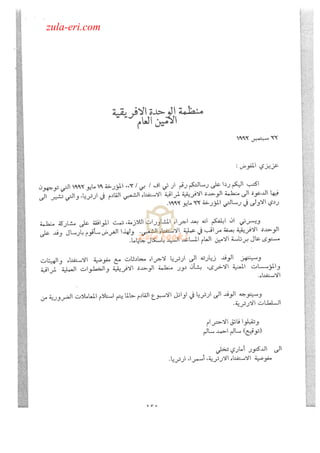 zula-eri.com
منظمة الوحدة الافريقية
الامين العام
٢٦ سبتمبر ١٩٩٢
عزيزي المفوض :
اكتب اليكم ردا على رسالتكم رقم ار ئي اف / ئي / ٠٠٣/ المؤرخة ١٩ مايو ١٩٩٢ التي توجهون
فيها الدعوة الى منظمة الوحدة الافريقية لمراقبة الاستفتاء الشعبي القادم في ارتريا، والتي تشير الى
ردي الاولي في رسالتي المؤرخة ٢٢ مايو ١٩٩٢.
ويسرني ان ابلغكم انه بعد اجراء المشاورات اللازمة، تمت الموافقة على مشاركة منظمة
الوحدة الافريقية بصفة مراقب في عملية الاستفتاء الشعبي. ولهذا الغرض سأقوم بارسال وفد على
مستوى عال برئاسة الامين العام المساعد السيد باسكال جاياما.
وسينتهز الوفد زيارته الى ارتريا لاجراء محادثات مع مفوضية الاستفتاء والهيئات
والمؤسسات المعنية الاخرى، بشأن دور منظمة الوحدة الافريقية والخطوات العملية لمراقبة
الاستفتاء.
وسيتوجه الوفد الى ارتريا في اوائل الاسبوع القادم حالما يتم استلام المعاملات الضرورية من
السلطات الارترية.
وتقبلوا فائق الاحترام
(توقيع) سالم احمد سالم
الى الدكتور أماري تخلي
مفوضية الاستفتاء الارترية، أسمرا، ارتريا.